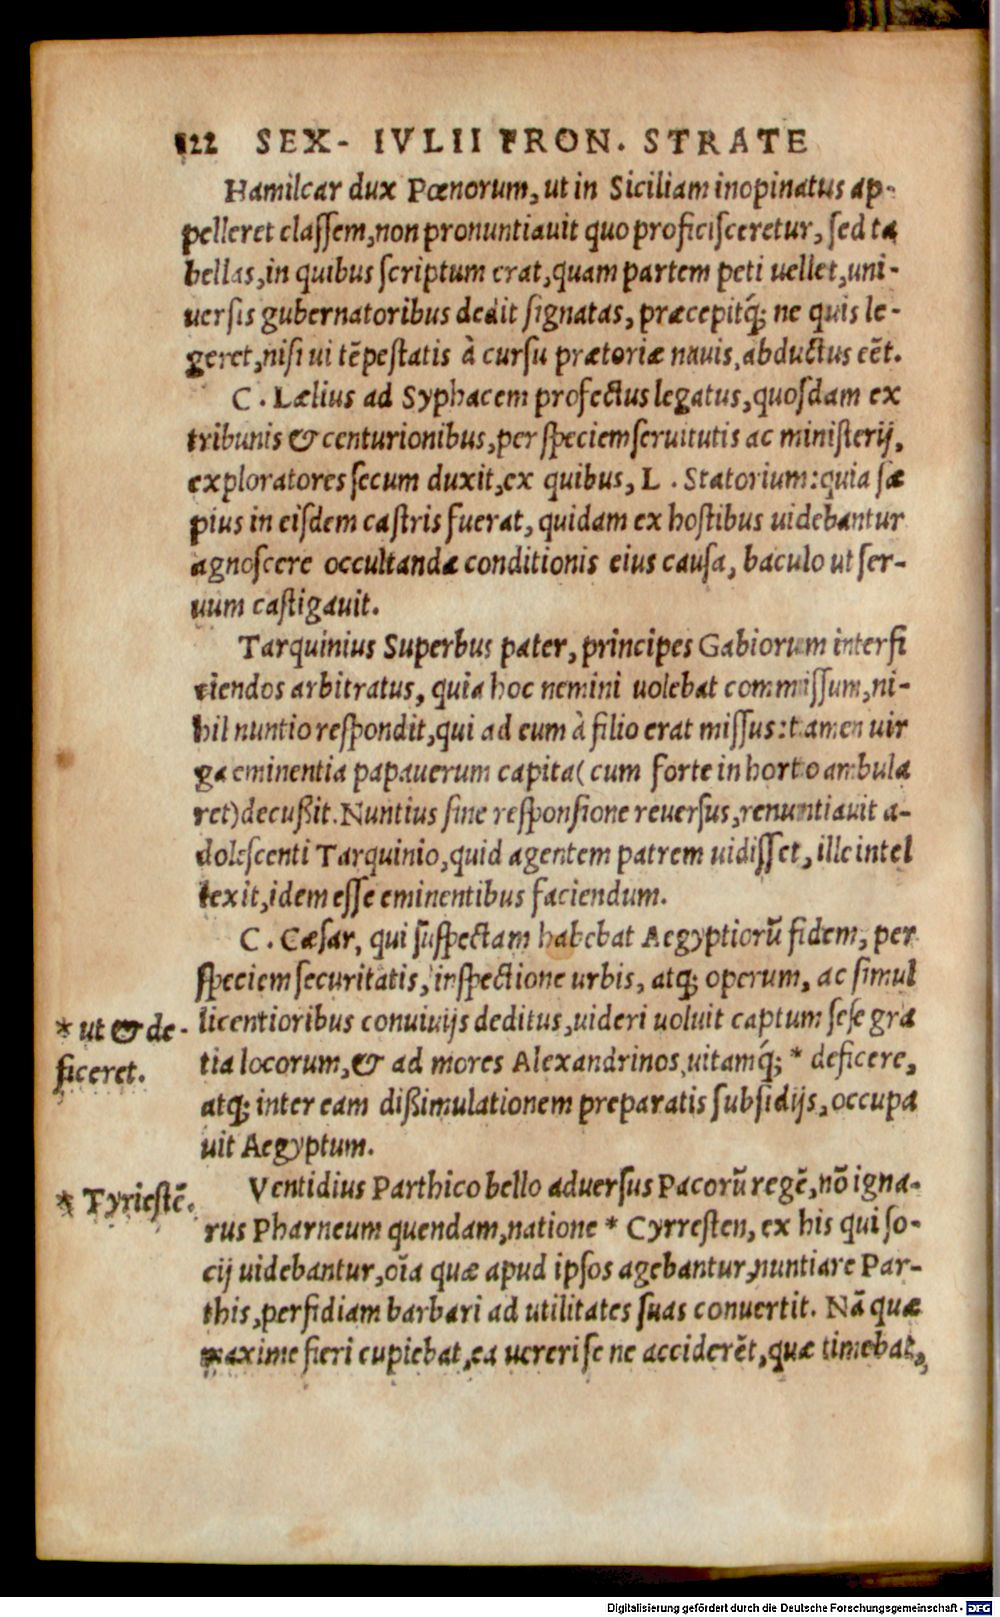 122 SEX- IVLII FRON. STRATE
Hamilcar dux Pœnorum, ut in Siciliam inopinatus ap-
pelleret classem, non pronuntiauit quo proficisceretur, sed ta
bellas, in quibus scriptum erat, quam partem peti uellet, uni-
uersis gubernatoribus dedit signatas, præcepitq́; ne quis le-
geret, nisi ui tẽpestatis à cursu prætoriæ nauis, abductus eẽt.
C. Lælius ad Syphacem profectus legatus, quosdam ex
tribunis & centurionibus, per speciem seruitutis ac ministerij,
exploratores secum duxit, ex quibus, L. Statorium: quia sæ
pius in eisdem castris fuerat, quidam ex hostibus uidebantur
agnoscere occultandæ conditionis eius causa, baculo ut ser-
uum castigauit.
Tarquinius Superbus pater, principes Gabiorum interfi
ciendos arbitratus, quia hoc nemini uolebat commissum, ni-
hil nuntio respondit, qui ad eum à filio erat missus: tamen uir
ga eminentia papauerum capita (cum forte in horto ambula
ret) decußit. Nuntius sine responsione reuersus, renuntiauit a-
dolescenti Tarquinio, quid agentem patrem uidisset, ille intel
lexit, idem esse eminentibus faciendum.
C. Cæsar, qui suspectam habebat Aegyptiorũ fidem, per
speciem securitatis, inspectione urbis, atq; operum, ac simul
* ut & de-
ficeret.
licentioribus conuiuijs deditus, uideri uoluit captum sese gra
tia locorum, & ad mores Alexandrinos, uitamq́; * deficere,
atq; inter eam dißimulationem preparatis subsidijs, occupa
uit Aegyptum.
* Tyriestẽ.
Ventidius Parthico bello aduersus Pacorũ regẽ, nõ igna-
rus Pharneum quendam, natione * Cyrresten, ex his qui so-
cij uidebantur, oĩa quæ apud ipsos agebantur, nuntiare Par-
this, perfidiam barbari ad utilitates suas conuertit. Nã quæ
maxime fieri cupiebat, ea uereri se ne acciderẽt, quæ timebat,
Digitalisierung gefördert durch die Deutsche Forschungsgemeinschaft - DFG